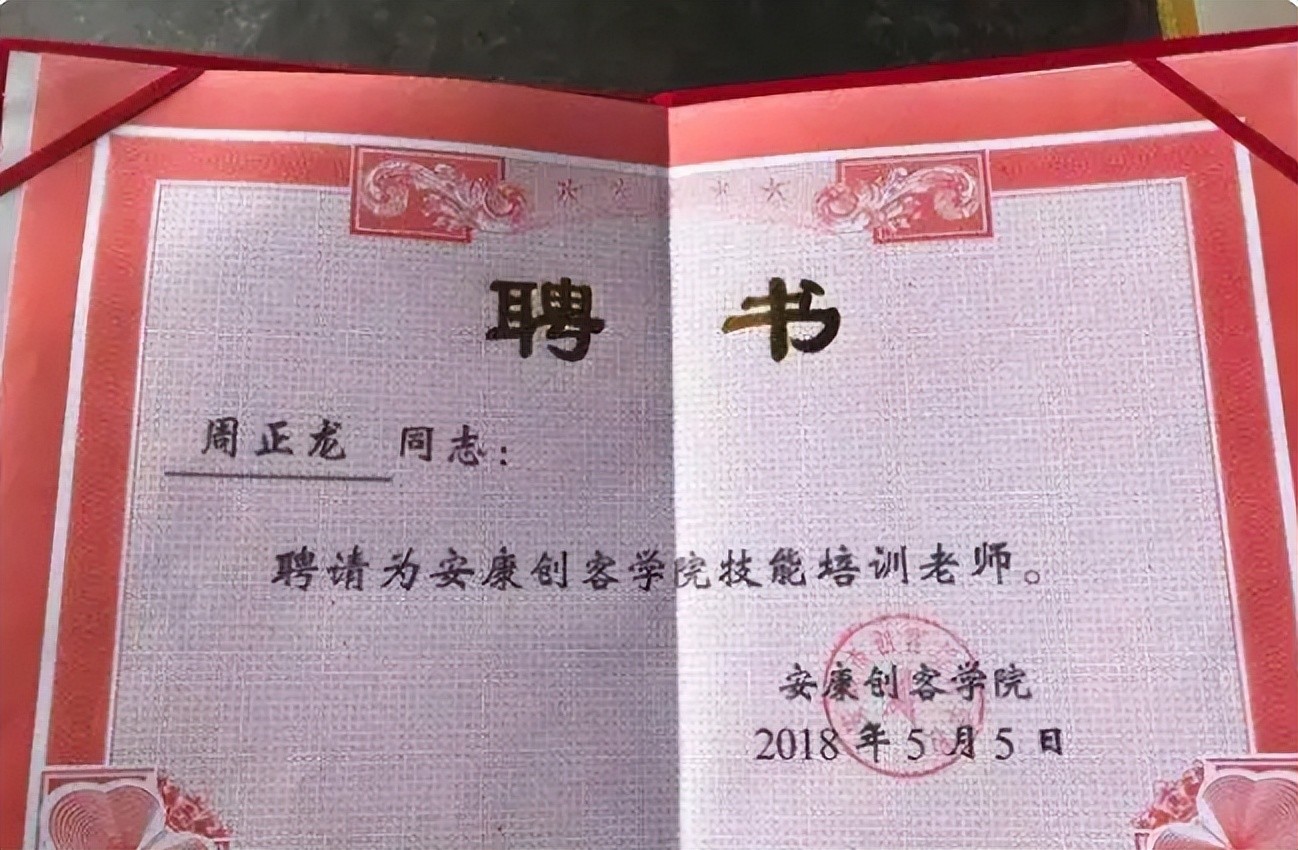 聘书
周正龙 同志：
聘请为安康创客学院技能培训老师。
安康创客学院
2018年5月5日